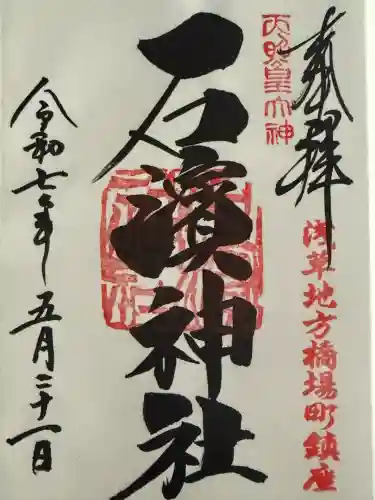 奉拝
天照皇大神
浅草地方橋場町鎮座
石濱神社
令和七年五月二十一日